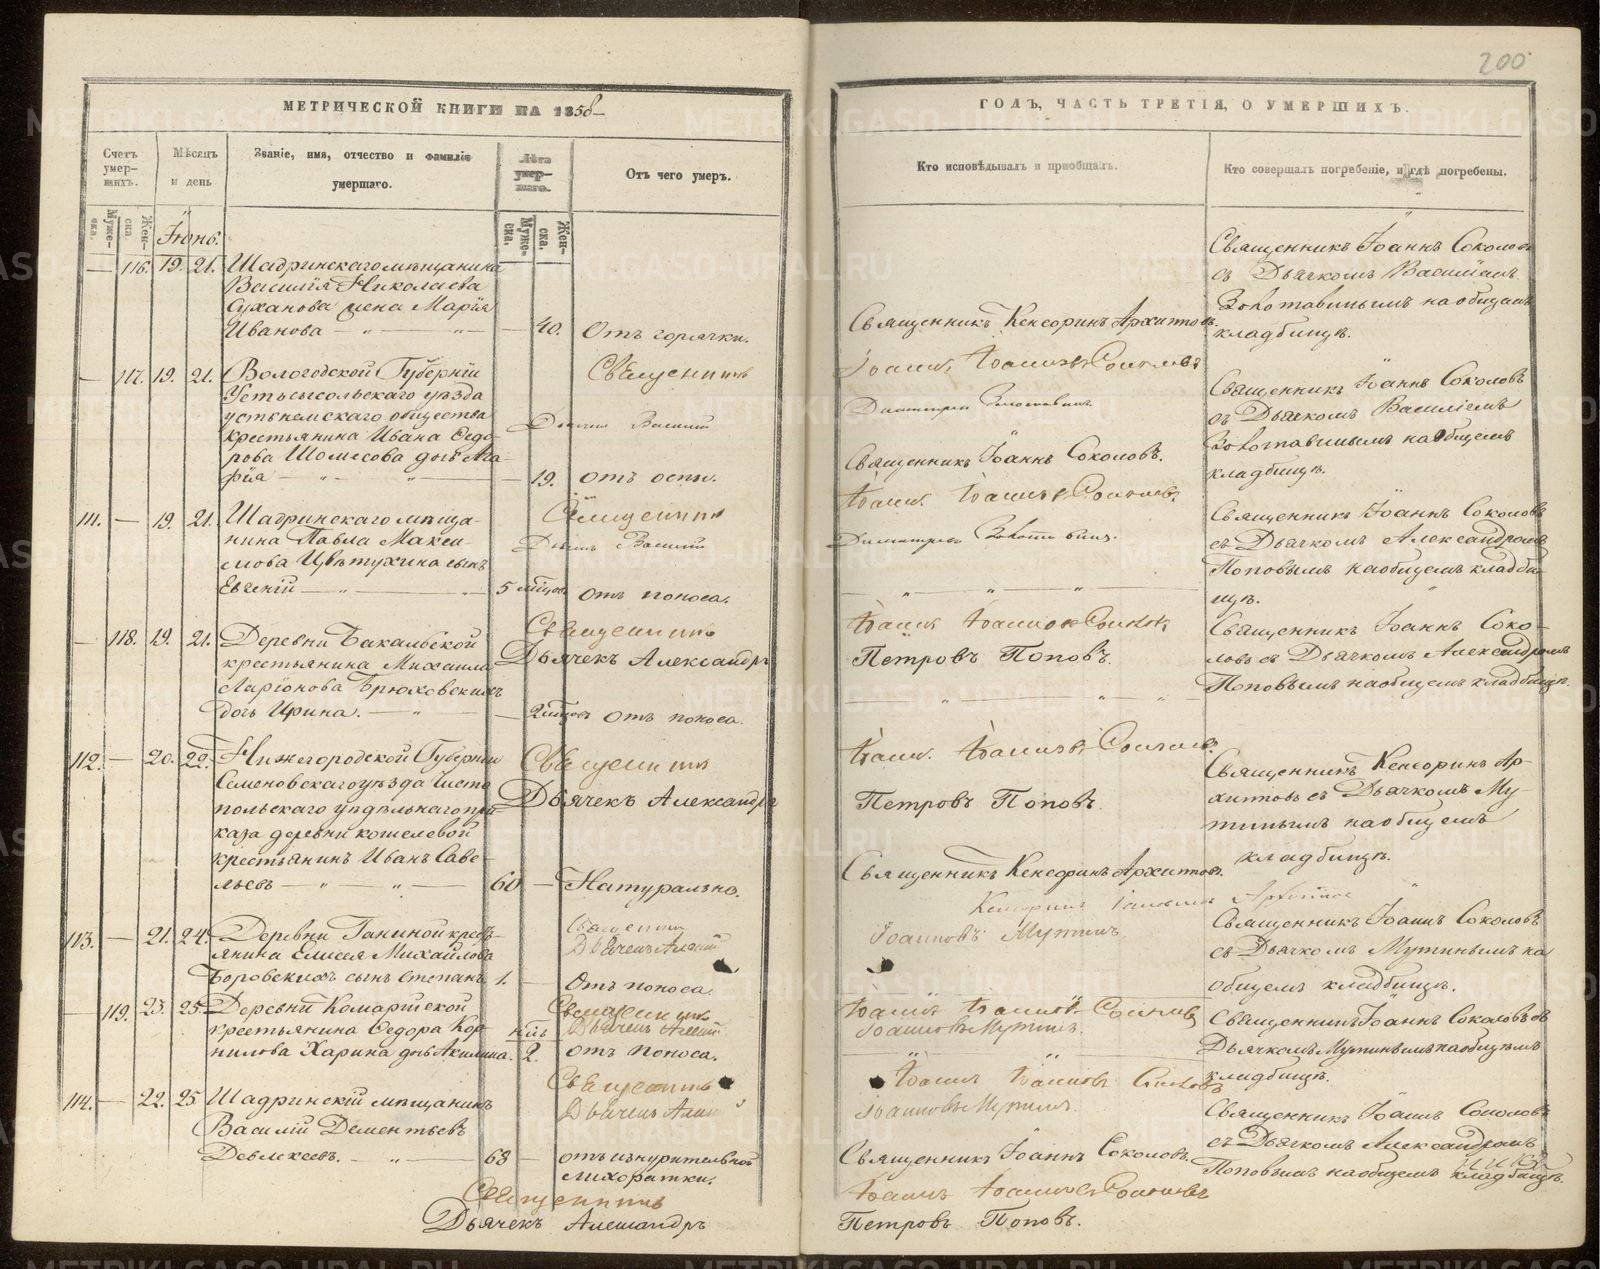 200
МЕТРИЧЕСКОЙ КНИГИ НА 1858
Счетъ умер-шихъ.
Мѣсяцъ и день
Званіе, имя, отчество и фамилія умершаго.
Лѣта умер-шаго.
Отъ чего умеръ.
Муже-ска.
Жен-ска.
Муже-ска.
Жен-ска.
Іюнь.
116. 19. 21. Шадринскаго мѣщанина
Василія Николаева
Суханова жена Марія
Иванова 40. Отъ горячки.
Священникъ
117. 19. 21. Вологодской Губерніи
Устьсысольскаго уѣзда
устьнемскаго общества
Дьячекъ Василій
крестьянина Ивана Ѳедо-
рова Шомысова дочь Ага-
фія 19. отъ оспы.
111. 19. 21. Шадринскаго мѣща-
Священникъ
нина Павла Макси-
Дьячекъ Василій
мова Цвѣтухина сынъ
Евгеній 5 мѣсяцовъ отъ поноса.
Священникъ
118. 19. 21. Деревни Бакальской
Дьячекъ Александръ
крестьянина Михаила
Ларіонова Брюховскихъ
дочь Ирина. 2 мѣсяцовъ отъ поноса.
112. 20. 22. Нижегородской Губерніи
Священникъ
Семеновскаго уѣзда Чисто
польскаго удѣльнаго при
Дьячекъ Александръ
каза деревни кошелевой
крестьянинъ Иванъ Саве-
льевъ 60 Натурально.
Священникъ
113. 21. 24. Деревни Ганиной кресть-
янина Елисея Михайлова
Дьячекъ
Боровскихъ сынъ Степанъ 1. Отъ поноса.
Священникъ
119. 23. 25. Деревни Комарской
Дьячекъ
крестьянина Ѳедора Кор-
нилова Харина дочь Акилина. 2. отъ поноса.
Священникъ
114. 22. 25 Шадринскій мѣщанинъ
Дьячекъ
Василій Дементьевъ
Девлекеевъ. 63 отъ изнурительной
лихоратки.
Священникъ
Дьячекъ Александръ
ГОДЪ, ЧАСТЬ ТРЕТІЯ, О УМЕРШИХЪ.
Кто исповѣдывалъ и приобщалъ.
Кто совершалъ погребеніе, и гдѣ погребены.
Священникъ Іоаннъ Соколовъ
съ Дьячкомъ Василіемъ
Золотавинымъ на общемъ
кладбищѣ.
Священникъ Кенсоринъ Архиповъ.
Іоаннъ Іоанновъ Соколовъ
Димитріевъ Золотавинъ
Священникъ Іоаннъ Соколовъ
съ Дьячкомъ Василіемъ
Золотавинымъ на общемъ
кладбищѣ.
Священникъ Іоаннъ Соколовъ.
Іоаннъ Іоанновъ Соколовъ
Димитріевъ Золотавинъ.
Священникъ Іоаннъ Соколовъ
съ Дьячкомъ Александромъ
Поповымъ на общемъ кладби-
щѣ.
Іоаннъ Іоанновъ Соколовъ
Петровъ Поповъ.
Священникъ Іоаннъ Соко-
ловъ съ Дьячкомъ Александромъ
Поповымъ на общемъ кладбищѣ.
Іоаннъ Іоанновъ Соколовъ
Петровъ Поповъ.
Священникъ Кенсоринъ Ар-
хиповъ съ Дьячкомъ Му-
тинымъ на общемъ
кладбищѣ.
Священникъ Кенсоринъ Архиповъ.
Іоанновъ Мутинъ.
Священникъ Іоаннъ Соколовъ
съ Дьячкомъ Мутинымъ на
общемъ кладбищѣ.
Іоаннъ Іоанновъ Соколовъ
Іоанновъ Мутинъ.
Священникъ Іоаннъ Соколовъ съ
Дьячкомъ Мутинымъ на общемъ
кладбищѣ.
Іоаннъ Іоанновъ Соколовъ
Іоанновъ Мутинъ.
Священникъ Іоаннъ Соколовъ
съ Дьячкомъ Александромъ
Поповымъ на общемъ кладбищѣ.
Священникъ Іоаннъ Соколовъ.
Іоаннъ Іоанновъ Соколовъ
Петровъ Поповъ.
METRIKI.GASO-URAL.RU